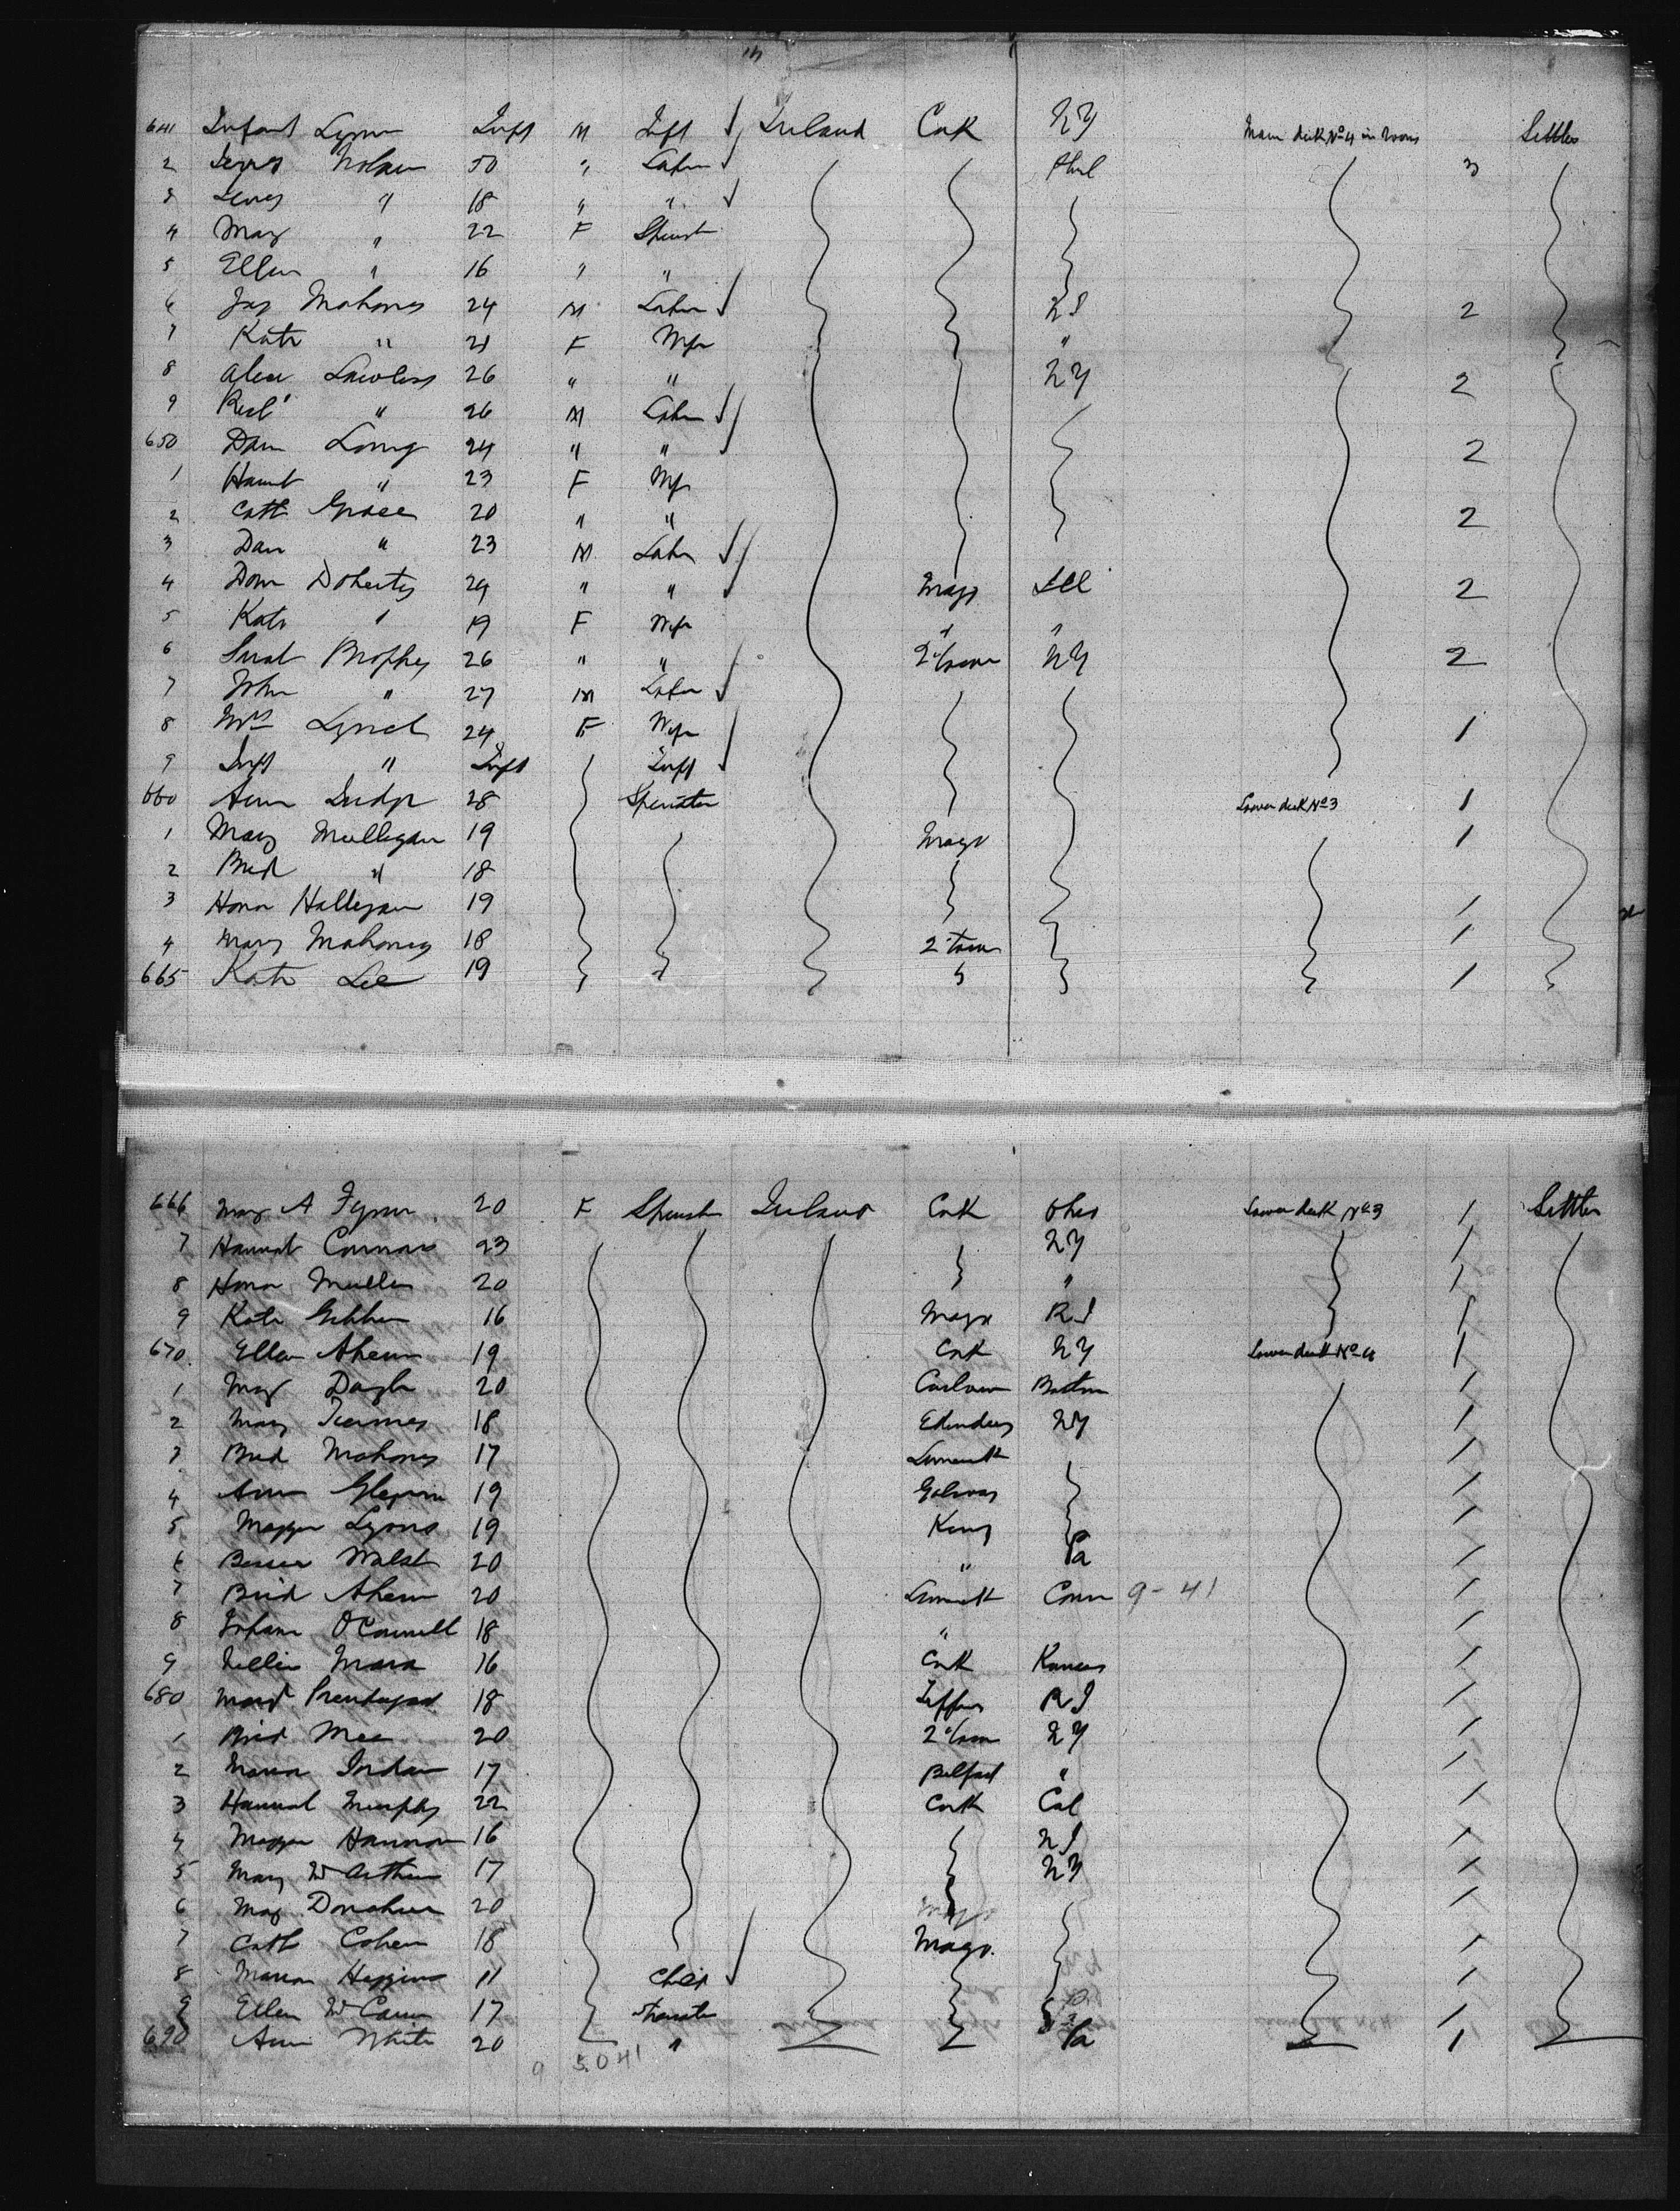 641 Infant Lynn Inft M Inft Ireland Cork NY Main deck No 4 in rooms Settler
2 Nolan 50 " Labr Phil 3
3 " 18 " "
4 Mary " 22 F Spinst
5 Ellen " 16 " "
6 Jas Mahoney 24 M Labr 2
7 Kate " 21 F Wife "
8 Alice Lawless 26 " " NY 2
9 Rich " 26 M Labr
650 Dan Long 24 " " 2
1 Hannt " 23 F Wife
2 Cath Grace 20 " " 2
3 Dan " 23 M Labr
4 Dom Doherty 24 " " Mayo Ill 2
5 Kate " 19 F Wife " "
6 Brophy 26 " " Q'town NY 2
7 John " 27 M Labr
8 Mrs Lynch 24 F Wife 1
9 Inft " Inft Inft
660 Ann Judge 28 Spinster Lower deck No 3 1
1 Mary Mulligan 19 Mayo 1
2 Brid " 18
3 Honor Halligan 19 1
4 Mary Mahoney 18 Q'town 1
665 Kate Lee 19 1
666 Mary A Flynn 20 F Spinst Ireland Cork Ohio Lower deck No 3 1 Settler
7 Hannah Connors 23 NY 1
8 Honor Mullen 20 " 1
9 Kate 16 Mayo RI 1
670 Ellen Ahern 19 Cork NY Lower deck No 4 1
1 Mary Doyle 20 Carlow Boston 1
2 Mary 18 NY 1
3 Brid Mahoney 17 Limerick 1
4 Ann 19 Galway 1
5 Maggie Lyons 19 Kerry 1
6 Bessie Walsh 20 " Pa 1
7 Brid Ahern 20 Limerick Conn 9-41 1
8 Johana O'Connell 18 " 1
9 Nellie Mara 16 Cork Kansas 1
680 Margt Prendergast 18 RI 1
1 Brid Mee 20 Q'town NY 1
2 Maria Jordan 17 Belfast " 1
3 Hannah Murphy 22 Cork Cal 1
4 Maggie Hannon 16 NJ 1
5 Mary McArthur 17 NY 1
6 Mary Donohue 20 1
7 Cath Cohen 18 Mayo 1
8 Maria Higgins 11 Child 1
9 Ellen McCann 17 Spinster 1
690 Annie White 20 " Pa 1
9 5041